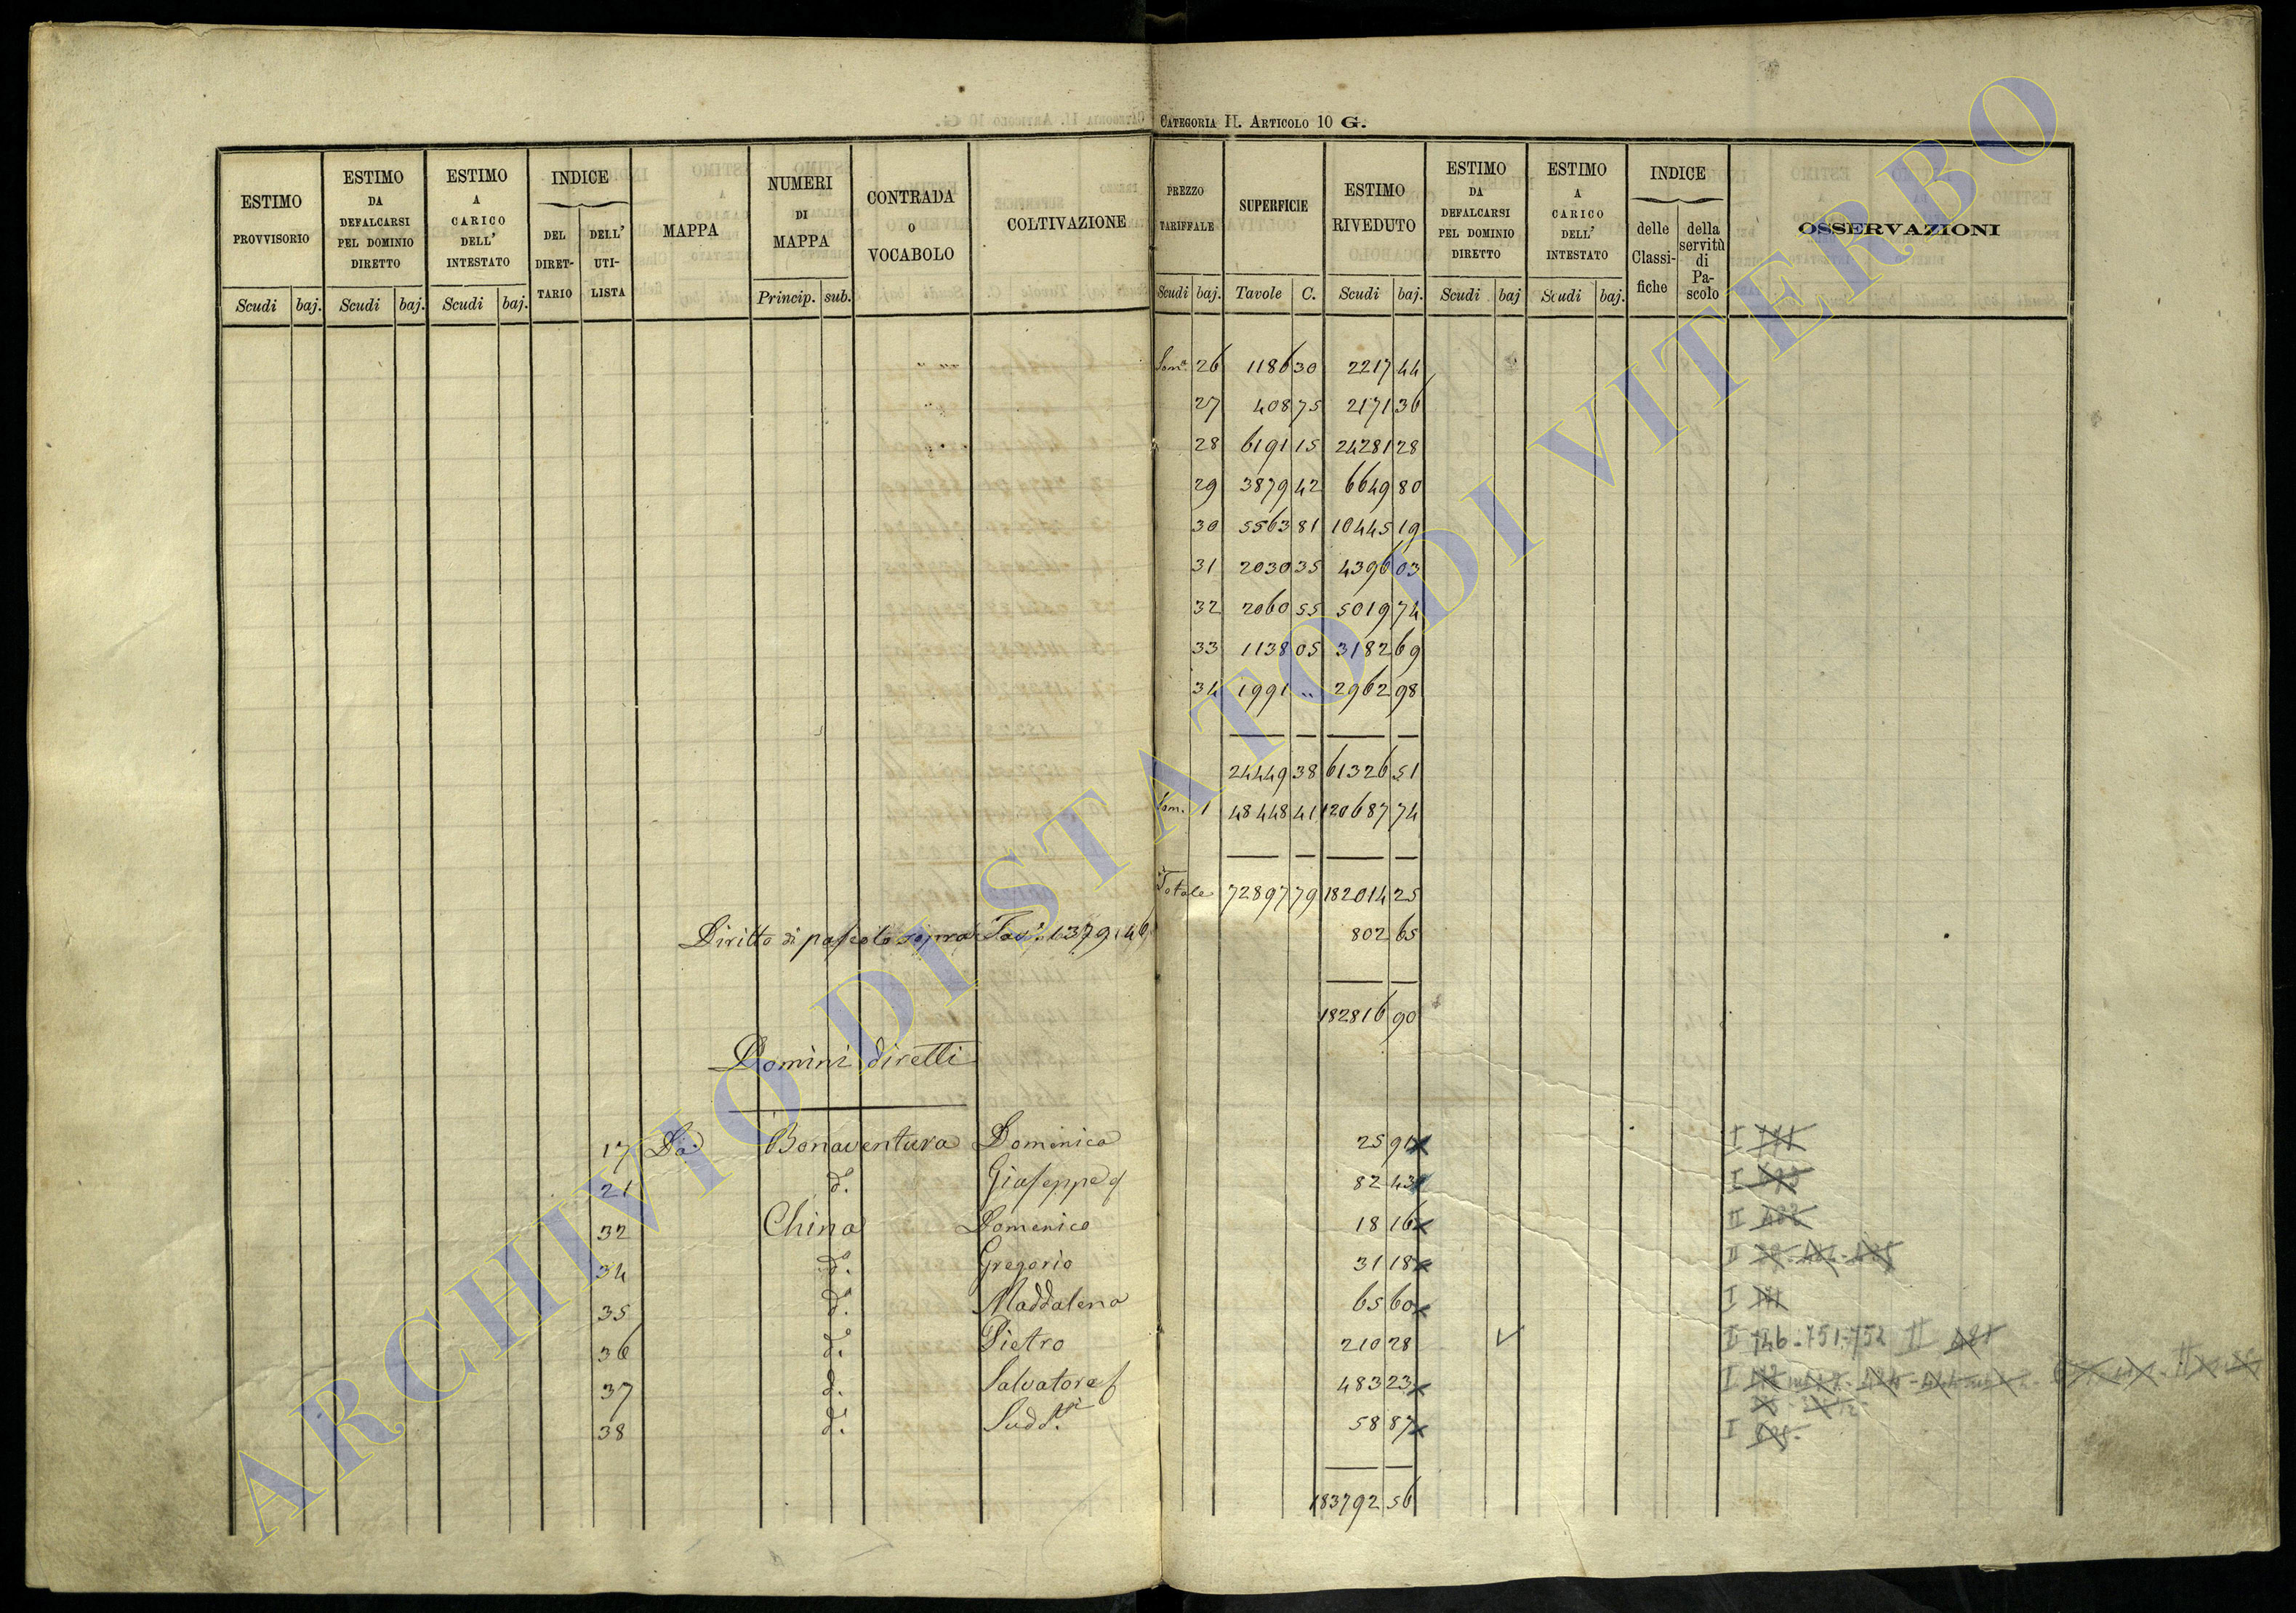 CATEGORIA II. ARTICOLO 10 G.
ESTIMO PROVVISORIO Scudi baj.
ESTIMO DA DEFALCARSI PEL DOMINIO DIRETTO Scudi baj.
ESTIMO A CARICO DELL' INTESTATO Scudi baj.
INDICE DEL DIRET-TARIO DELL' UTI-LISTA
MAPPA
NUMERI DI MAPPA Princip. sub.
CONTRADA O VOCABOLO
COLTIVAZIONE
PREZZO TARIFFALE Scudi baj.
SUPERFICIE Tavole C.
ESTIMO RIVEDUTO Scudi baj.
ESTIMO DA DEFALCARSI PEL DOMINIO DIRETTO Scudi baj
ESTIMO A CARICO DELL' INTESTATO Scudi baj.
INDICE delle Classi-fiche della servitù di Pa-scolo
OSSERVAZIONI
Som.ª 26 1186 30 2217 44
27 408 75 2171 36
28 6191 15 24281 28
29 3879 42 6649 80
30 5563 81 10445 19
31 2030 35 4396 03
32 2060 55 5019 74
33 1138 05 3182 69
34 1991 " 2962 98
24449 38 61326 51
Som. 1 48448 41 120687 74
Totale 72897 79 182014 25
Diritto di pascolo sopra Tav.e 1379.46 802 65
182816 90
Domini diretti
17 Da Bonaventura Domenica 25 91 x I
21 d.° Giuseppe q 82 43 I
32 China Domenico 18 16 x II
34 d.° Gregorio 31 18 x II
35 d.° Maddalena 65 60 x I
36 d.° Pietro 210 28 I 746-751-752 II
37 d. Salvatore f 483 23 x I
38 d.° Sudd.° 58 87 x I
183792 56
ARCHIVIO DI STATO DI VITERBO